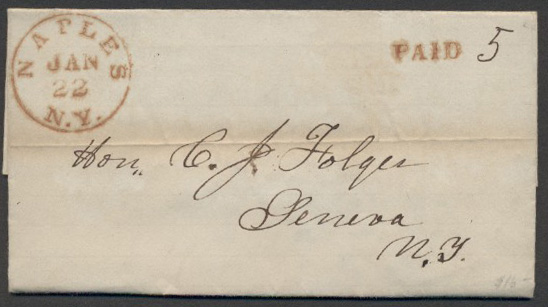 NAPLES
JAN
22
N.Y.
PAID 5
Hon. C. J. Folger
Geneva
N.Y.